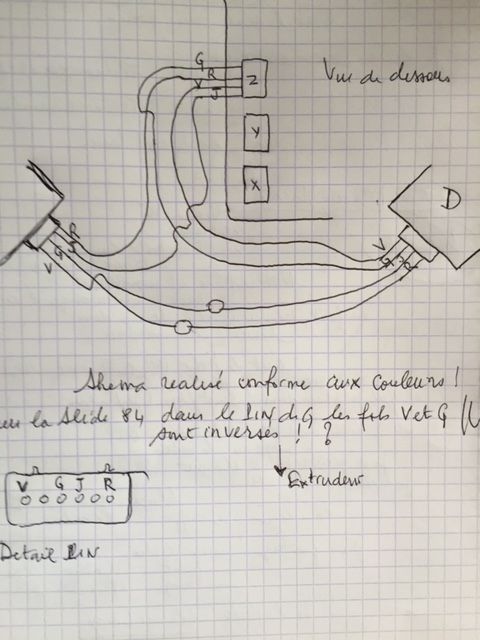 Vue de dessous
G
R
V
J
Z
Y
X
D
R
G
J
V
V
G
J
R
Shema realisé conforme aux couleurs !
la slide 84 dans le LIN diG les fils V et G
sont inversés ! ?
Extrudeur
V G J R
Detail LIN